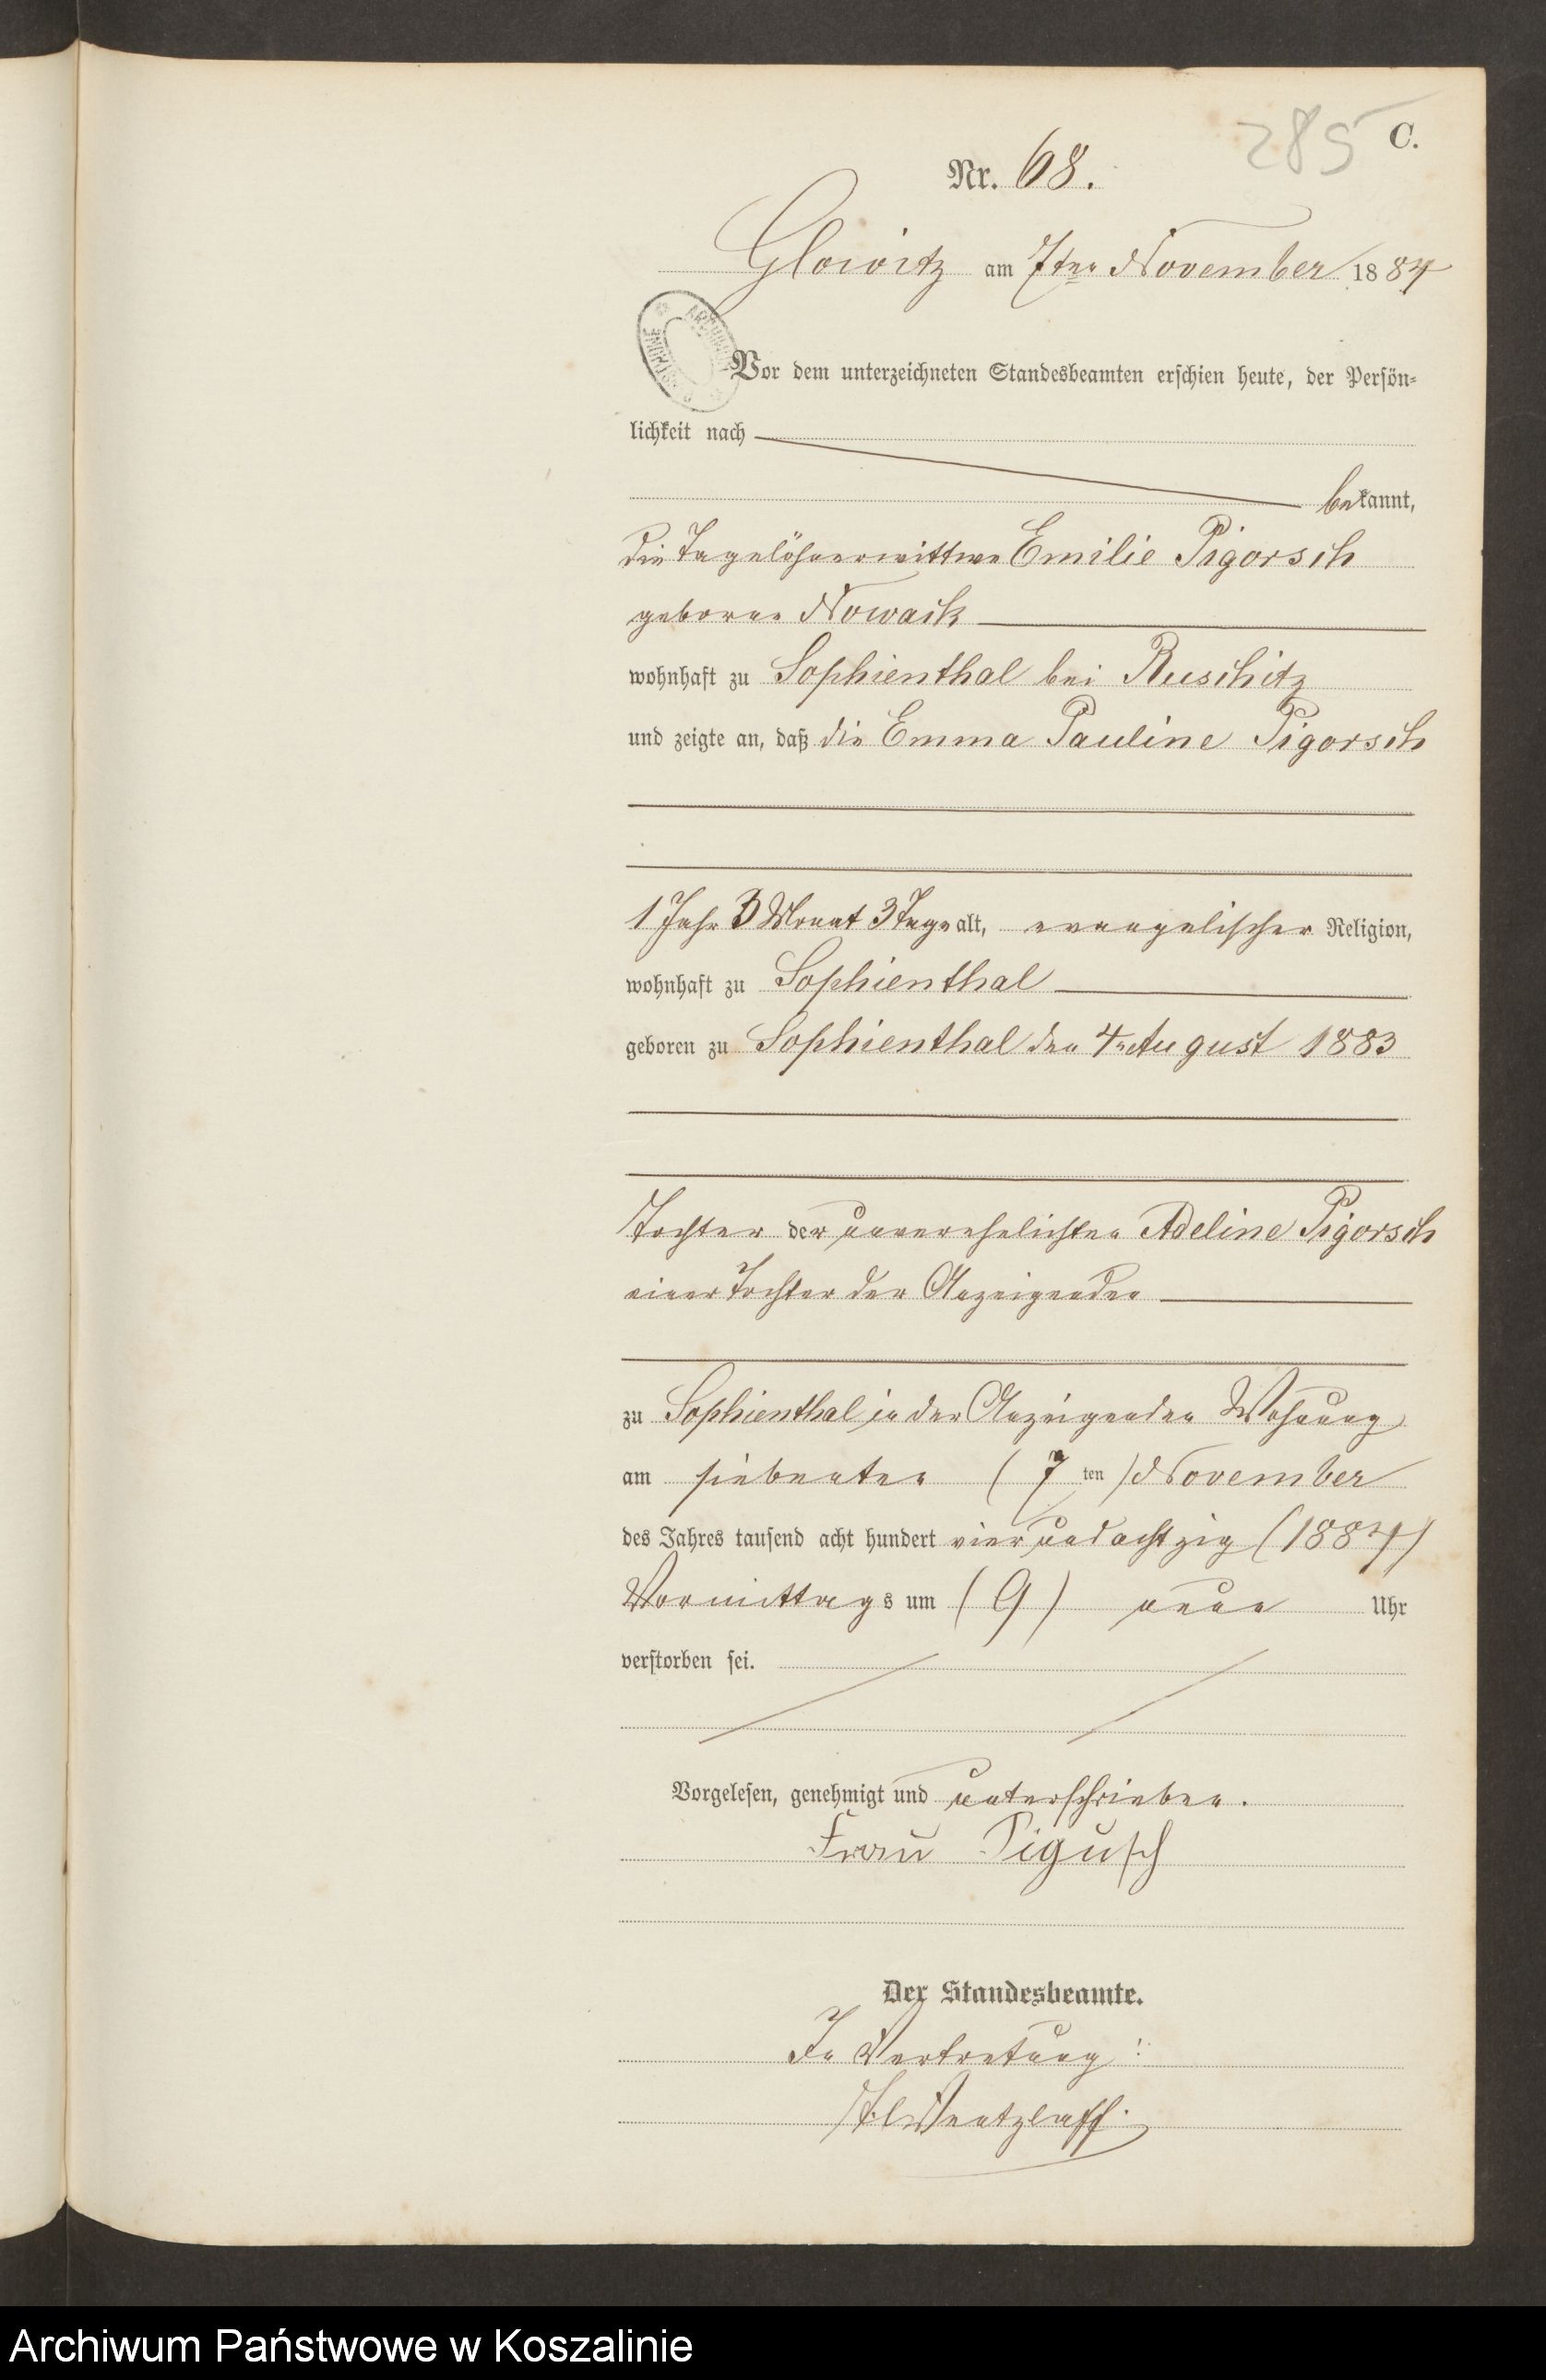 285 C.
Nr. 68.
Glowitz am 7ten November 1884
Vor dem unterzeichneten Standesbeamten erschien heute, der Persön-
lichkeit nach
bekannt,
die Tagelöhnerwittwe Emilie Pigorsch
geborne Nowack
wohnhaft zu Sophienthal bei Ruschitz
und zeigte an, daß die Emma Pauline Pigorsch
1 Jahr 3 Monat 3 Tage alt, evangelischer Religion,
wohnhaft zu Sophienthal
geboren zu Sophienthal den 4. August 1883
Tochter der unverehelichten Adeline Pigorsch
einer Tochter der Anzeigenden
zu Sophienthal in der Anzeigenden Wohnung
am siebenten (7 ten) November
des Jahres tausend acht hundert vier und achtzig (1884)
Vormittags um (9) neun Uhr
verstorben sei.
Vorgelesen, genehmigt und unterschrieben.
Frau Pigusch
Der Standesbeamte.
In Vertretung:
Wentzlaff.
Archiwum Państwowe w Koszalinie